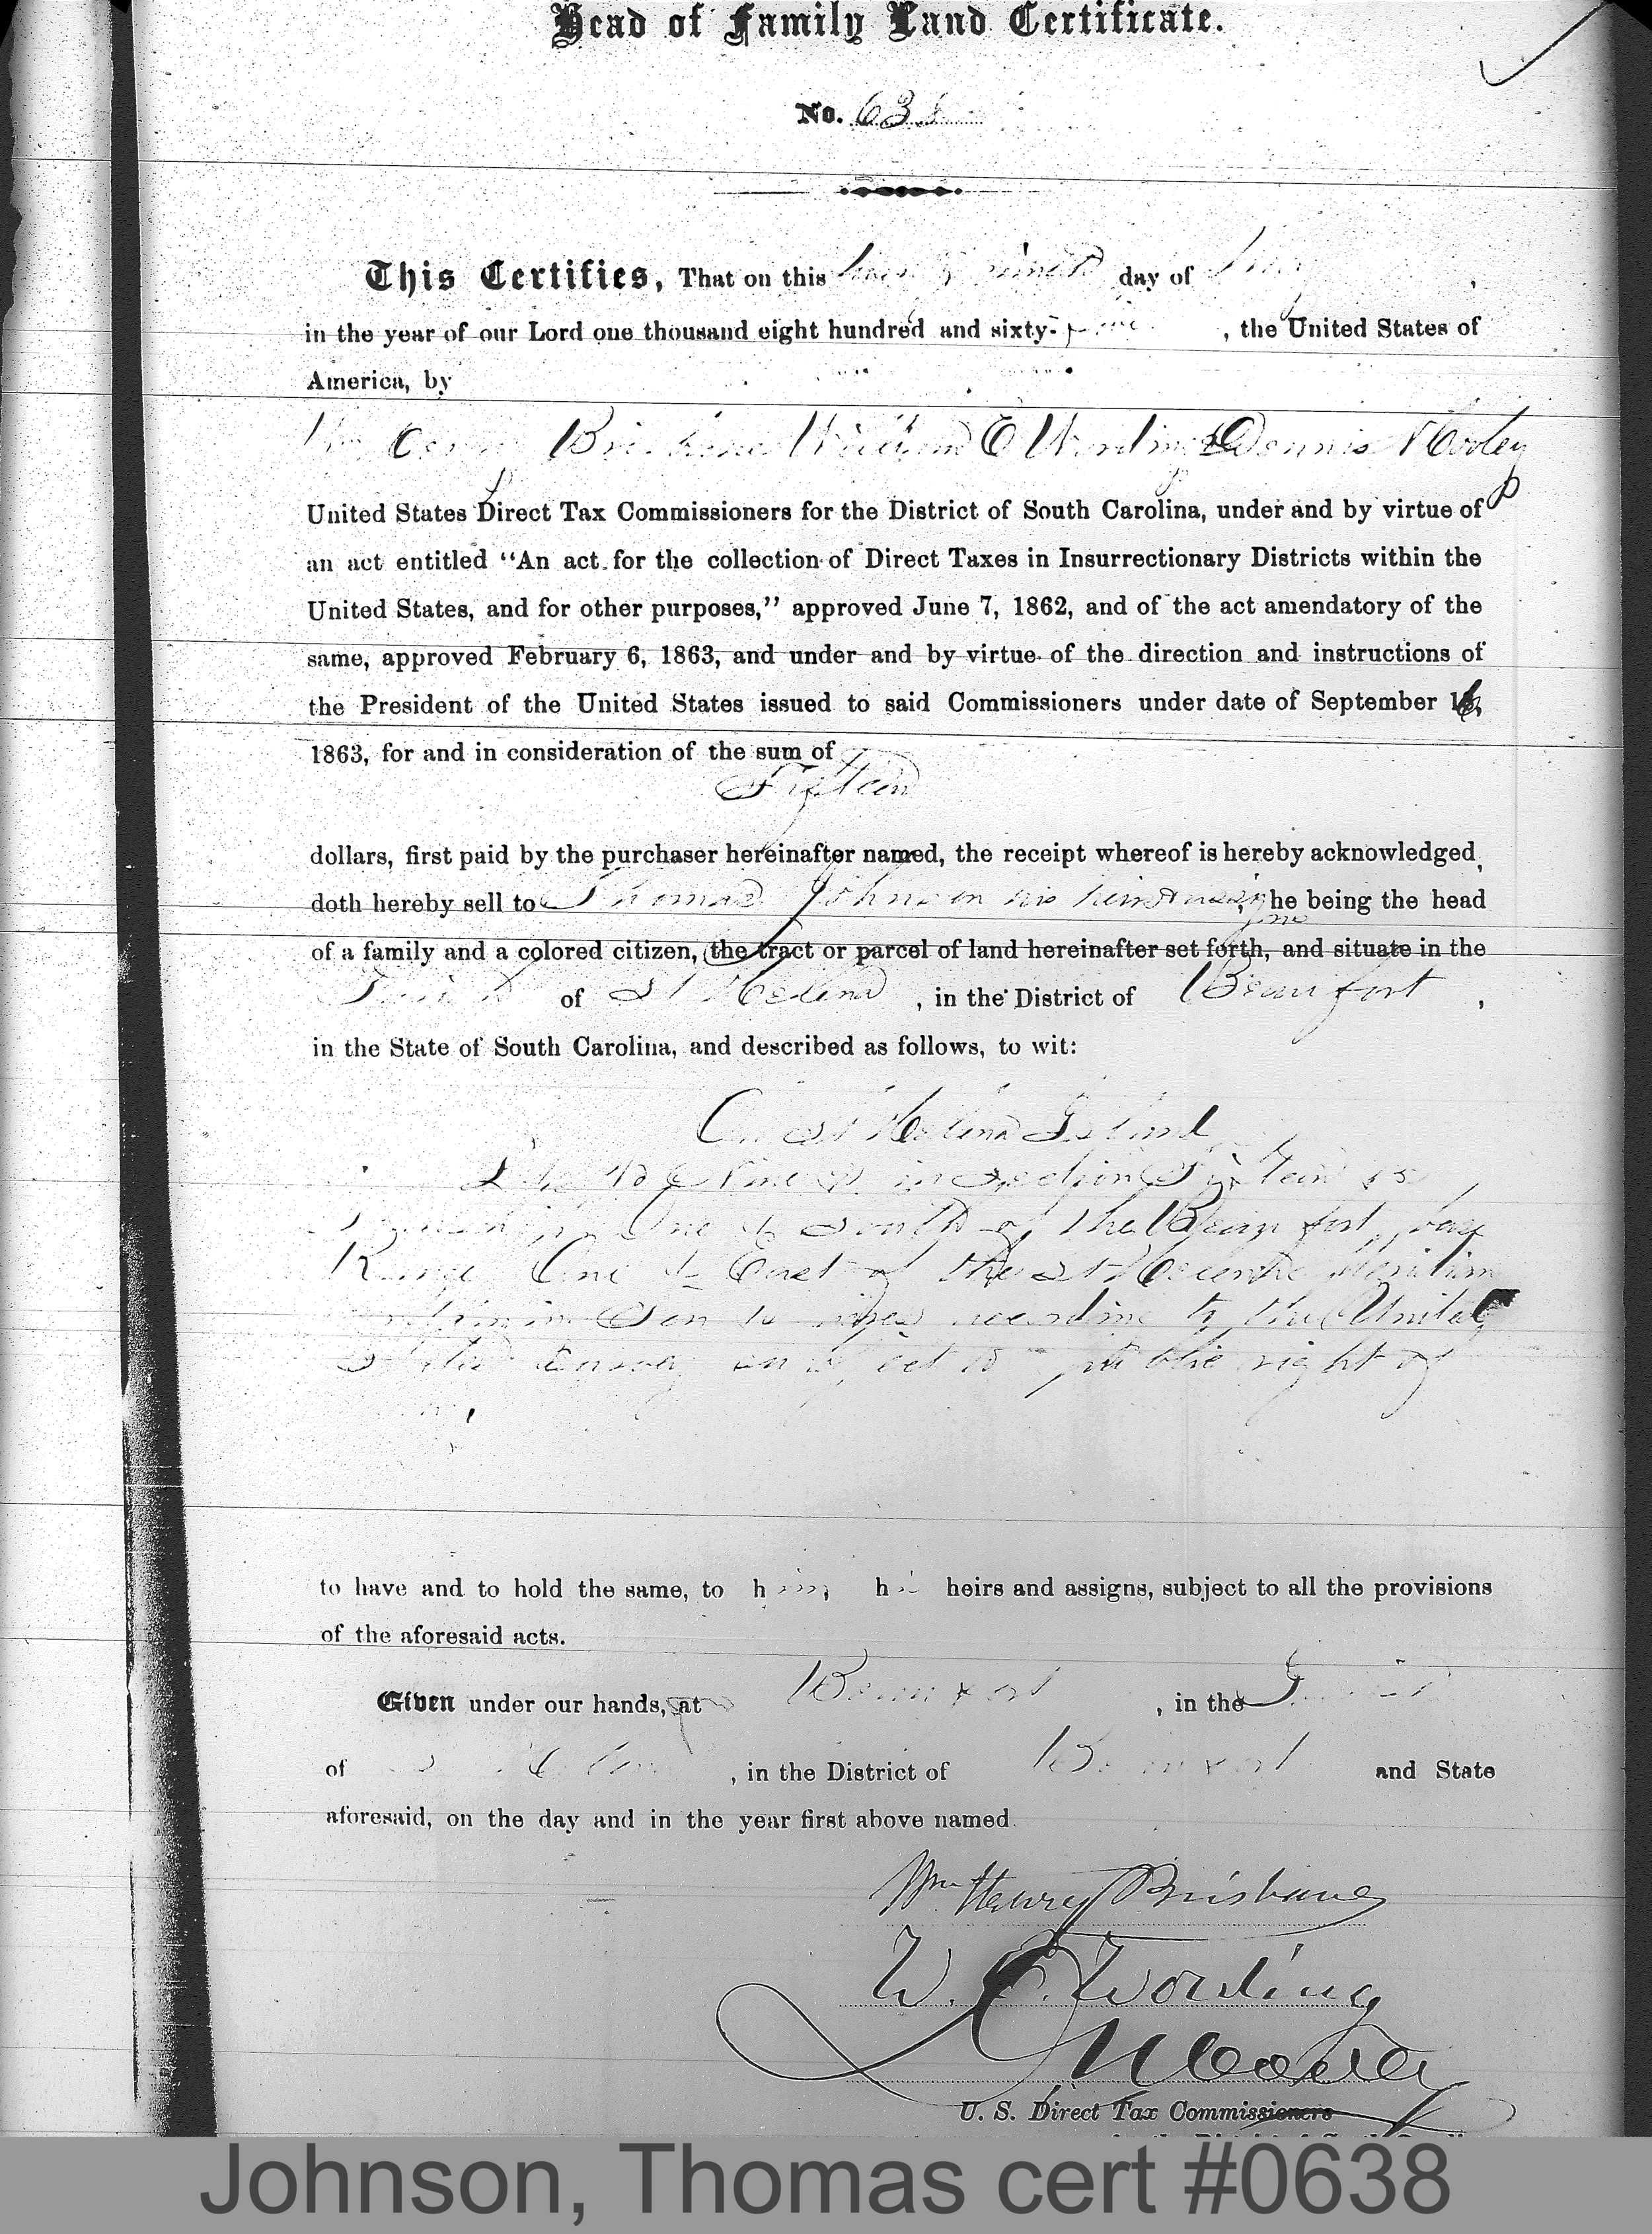 Head of Family Land Certificate.
No. 638
This Certifies, That on this day of
in the year of our Lord one thousand eight hundred and sixty-, the United States of
America, by
Wm Henry Brisbane William E Wording & Dennis N Cooley
United States Direct Tax Commissioners for the District of South Carolina, under and by virtue of
an act entitled "An act for the collection of Direct Taxes in Insurrectionary Districts within the
United States, and for other purposes," approved June 7, 1862, and of the act amendatory of the
same, approved February 6, 1863, and under and by virtue of the direction and instructions of
the President of the United States issued to said Commissioners under date of September 16,
1863, for and in consideration of the sum of
Fifteen
dollars, first paid by the purchaser hereinafter named, the receipt whereof is hereby acknowledged,
doth hereby sell to Thomas Johnson his heirs & assigns, he being the head
of a family and a colored citizen, the tract or parcel of land hereinafter set forth, and situate in the
Parish of St Helena, in the District of Beaufort,
in the State of South Carolina, and described as follows, to wit:
On St Helena Island
in Section
Township One 1 South of the Beaufort base
Range One 1 East of the St Helena Meridian
containing Ten 10 acres according to the United
States Survey subject to public right of
way,
to have and to hold the same, to him, his heirs and assigns, subject to all the provisions
of the aforesaid acts.
Given under our hands, at Beaufort, in the Parish
of St Helena, in the District of Beaufort and State
aforesaid, on the day and in the year first above named.
Wm. Henry Brisbane
W. E. Wording
D N Cooley
U. S. Direct Tax Commissioners
Johnson, Thomas cert #0638